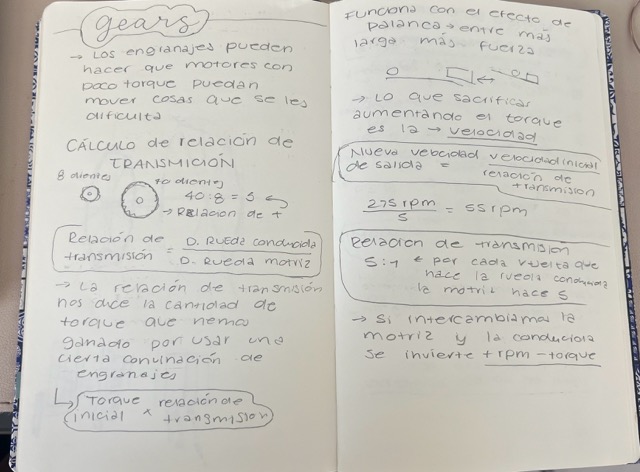 gears
→ Los engranajes pueden
hacer que motores con
poco torque puedan
mover cosas que se les
dificulta
CÁLCULO de relación de
TRANSMICIÓN
8 dientes
40 dientes
40:8 = 5
→ Relacion de t
Relación de transmisión = D. Rueda conducida
D. Rueda motriz
→ La relación de transmisión
nos dice la cantidad de
torque que hemos
ganado por usar una
cierta convinación de
engranajes
Torque inicial x relación de transmision
Funciona con el efecto de
palanca → entre más
larga más fuerza
→ Lo que sacrificas
aumentando el torque
es la → velocidad
Nueva velocidad de salida = velocidad inicial
relación de transmision
275 rpm
5
= 55 rpm
Relación de transmisión
5:1 * por cada vuelta que
hace la rueda conducida
la motriz hace 5
→ Si intercambiamos la
motriz y la conducida
se invierte +rpm -torque